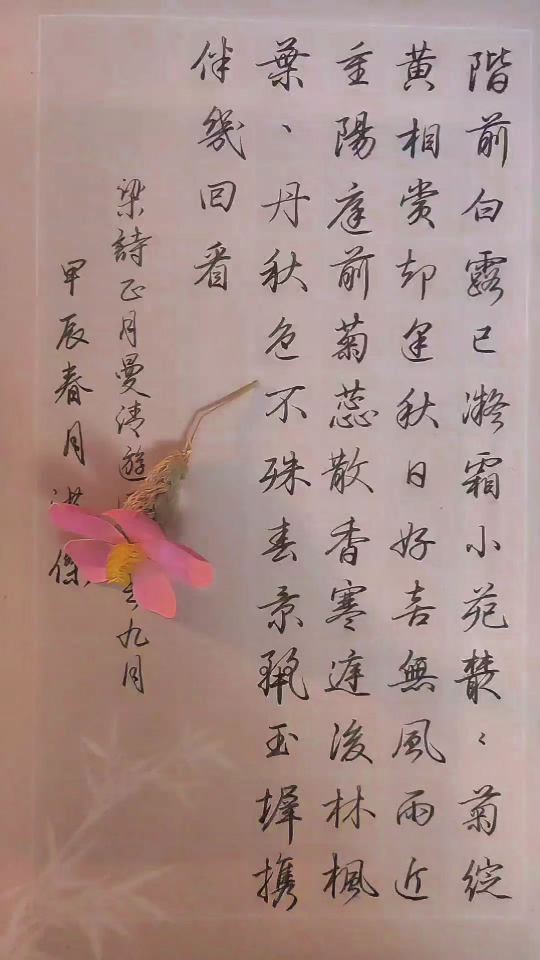 階前白露已凝霜小苑叢〻菊綻
黄相賞却逢秋日好喜無風雨近
重陽庭前菊蕊散香寒遥後林楓
葉〻丹秋色不殊春景麗玉墀攜
伴幾回看
梁詩正月曼清遊 九月
甲辰春月 傑